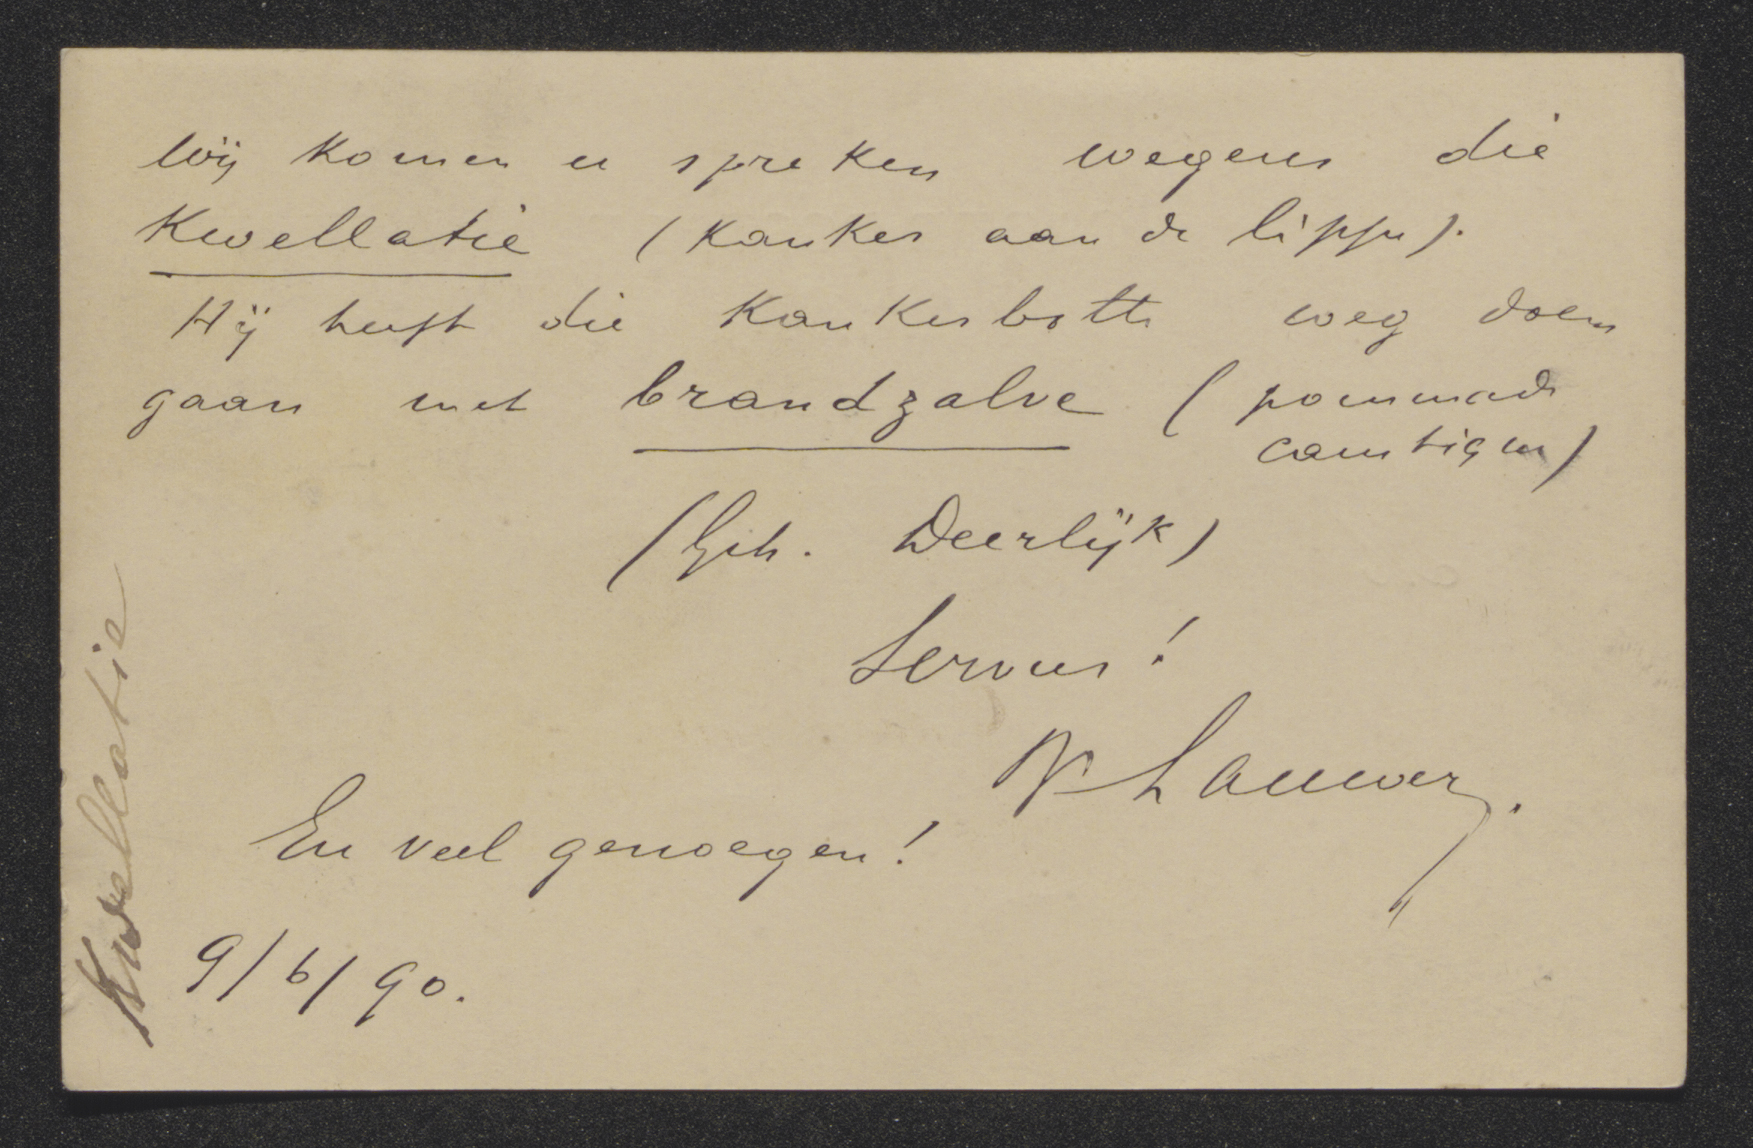 Wij komen u spreken wegens die
Kwellatie (kanker aan de lippe).
Hij heeft die kankerbotte weg doen
gaan met brandzalve (pommade
caustique)
(Geh. Deerlijk)
Servus!
Lauwers.
En veel genoegen!
9/6/90.
Kwellatie